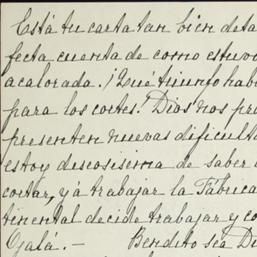 Está tu carta tan bien deta
fecta cuenta de como estuvo
acalorada. ¡Qué triunfo hab
para los cortes! Dios nos pr
presenten nuevas dificult
estoy deseosisima de saber
cortar, y á trabajar la Fábrica
tinental decide trabajar y co
Ojalá.— Bendito sea Di